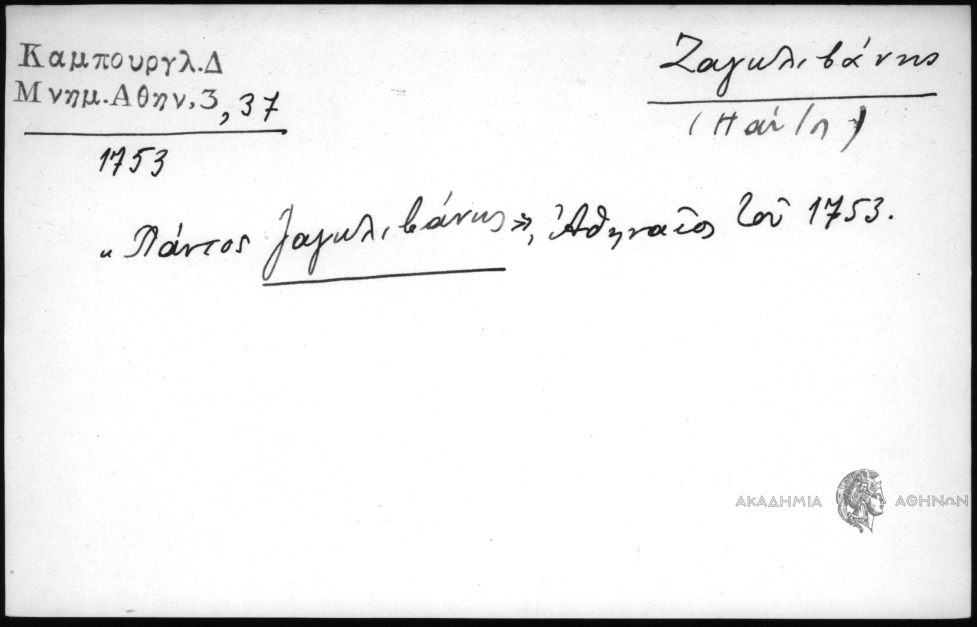 Καμπουργλ.Δ
Μνημ.Αθην,3,37
1753
Ζαγκλιβάνης
« Πάντος Ζαγκλιβάνης », Ἀθηναῖος τοῦ 1753.
ΑΚΑΔΗΜΙΑ ΑΘΗΝΩΝ